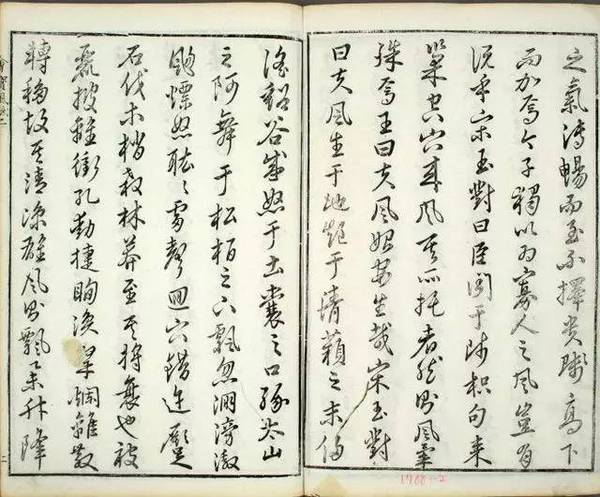 之氣溥暢而至不擇貴賤高下
而加焉今子獨以為寡人之風豈有
說乎宋玉對曰臣聞于師枳句來
巢空穴來風其所托者然則風氣
殊焉王曰夫風始安生哉宋玉對
曰夫風生于地起于青蘋之末侵
淫谿谷盛怒于土囊之口緣太山
之阿舞于松柏之下飄忽淜滂激
颺熛怒耾〻雷聲迴穴錯迕蹷
石伐木梢殺林莽至其將衰也被
麗披離衝孔動楗眴渙粲爛離散
轉移故其清涼雄風則飄舉升降
1700-2